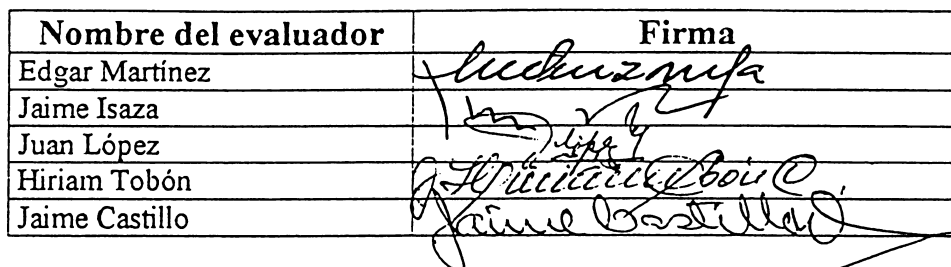 Nombre del evaluador Firma
Edgar Martínez
Jaime Isaza
Juan López
Hiriam Tobón
Jaime Castillo Jaime Castillo